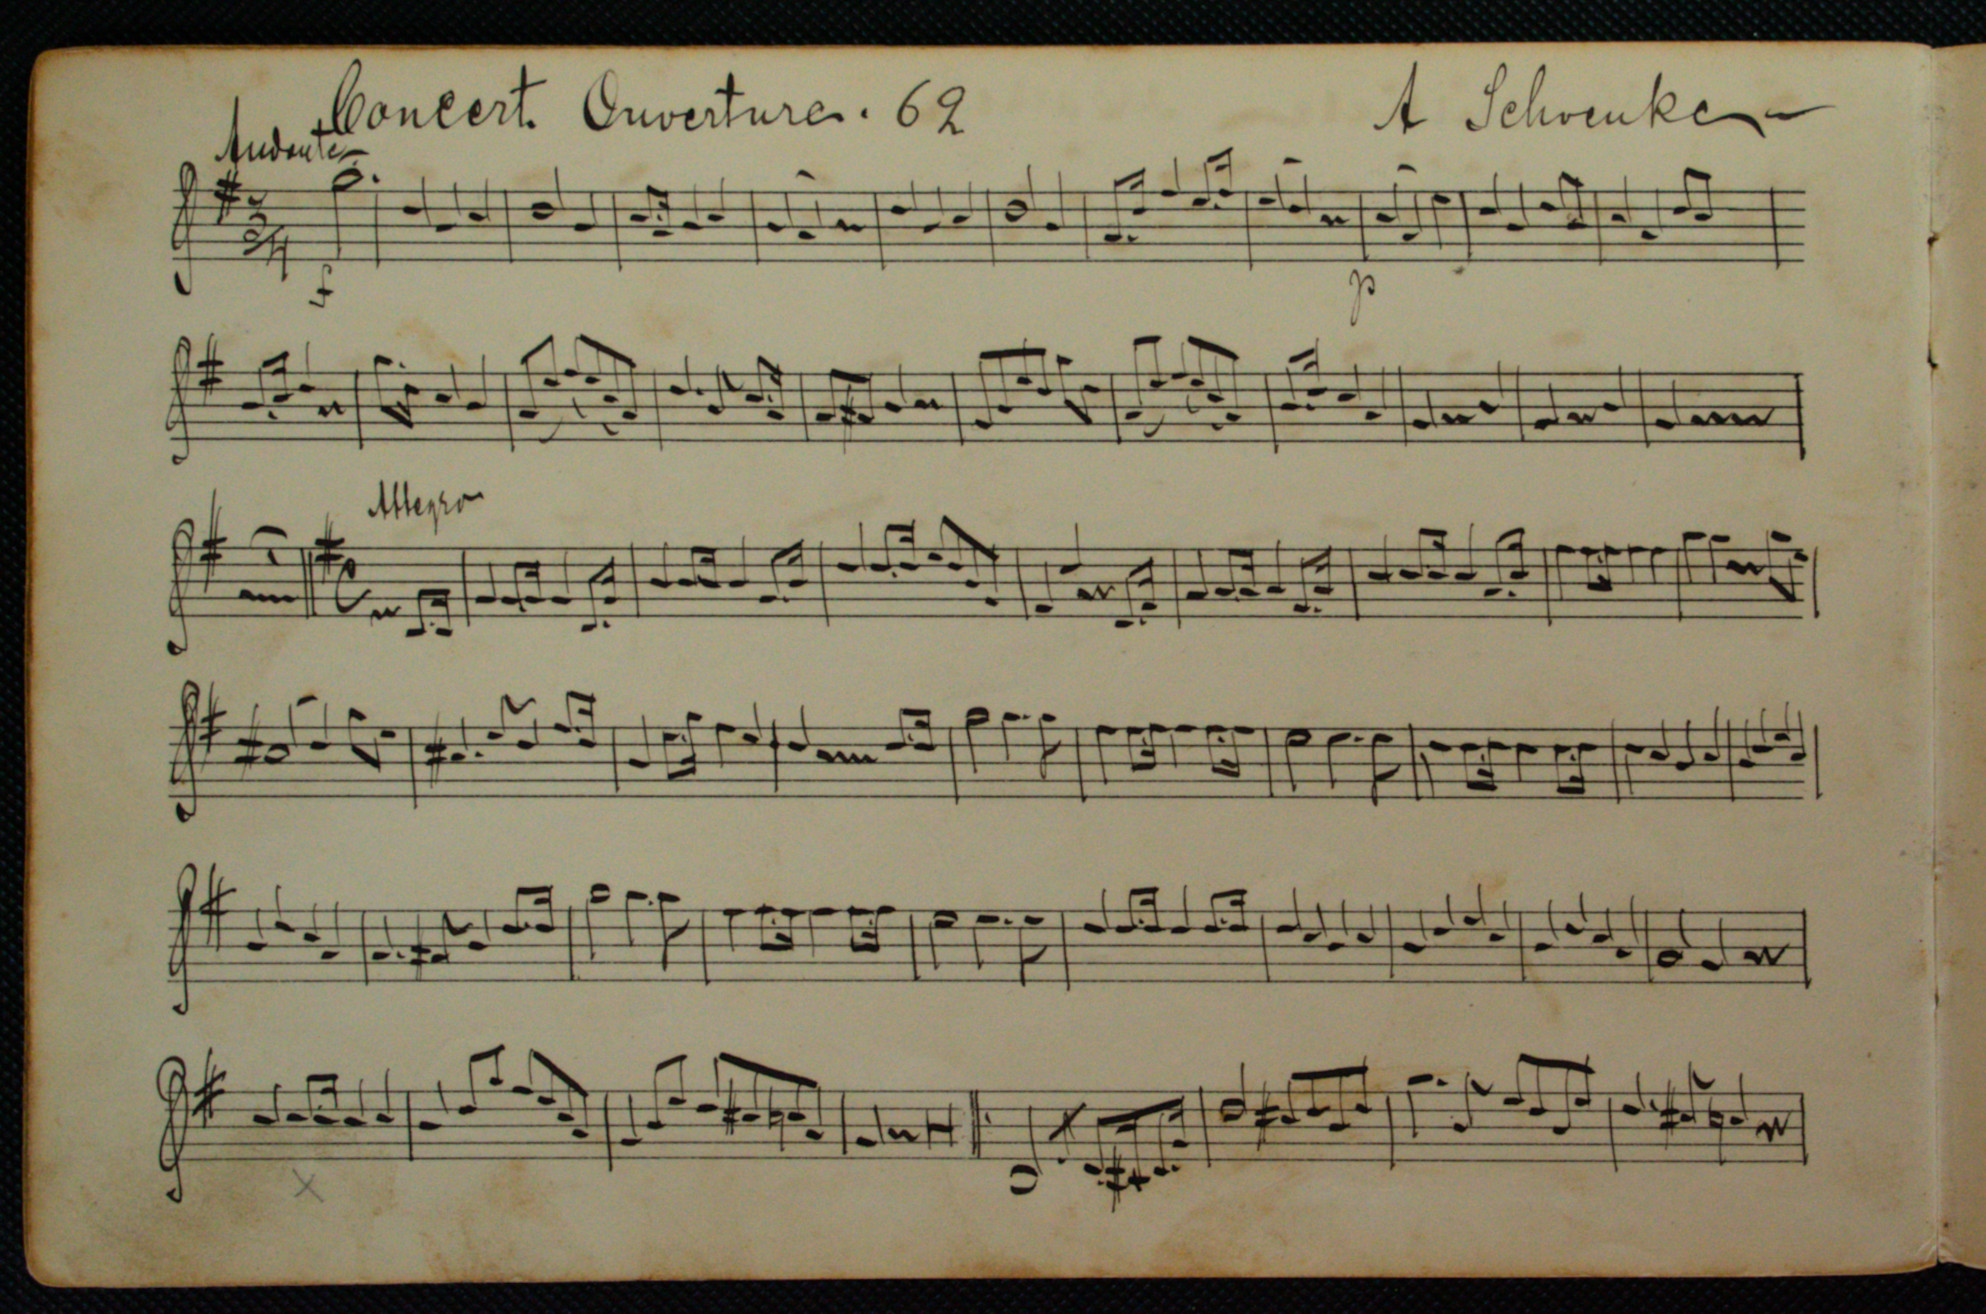 Concert Ouverture. 62 A Schvenke
Andante
3/4
f p
Allegro